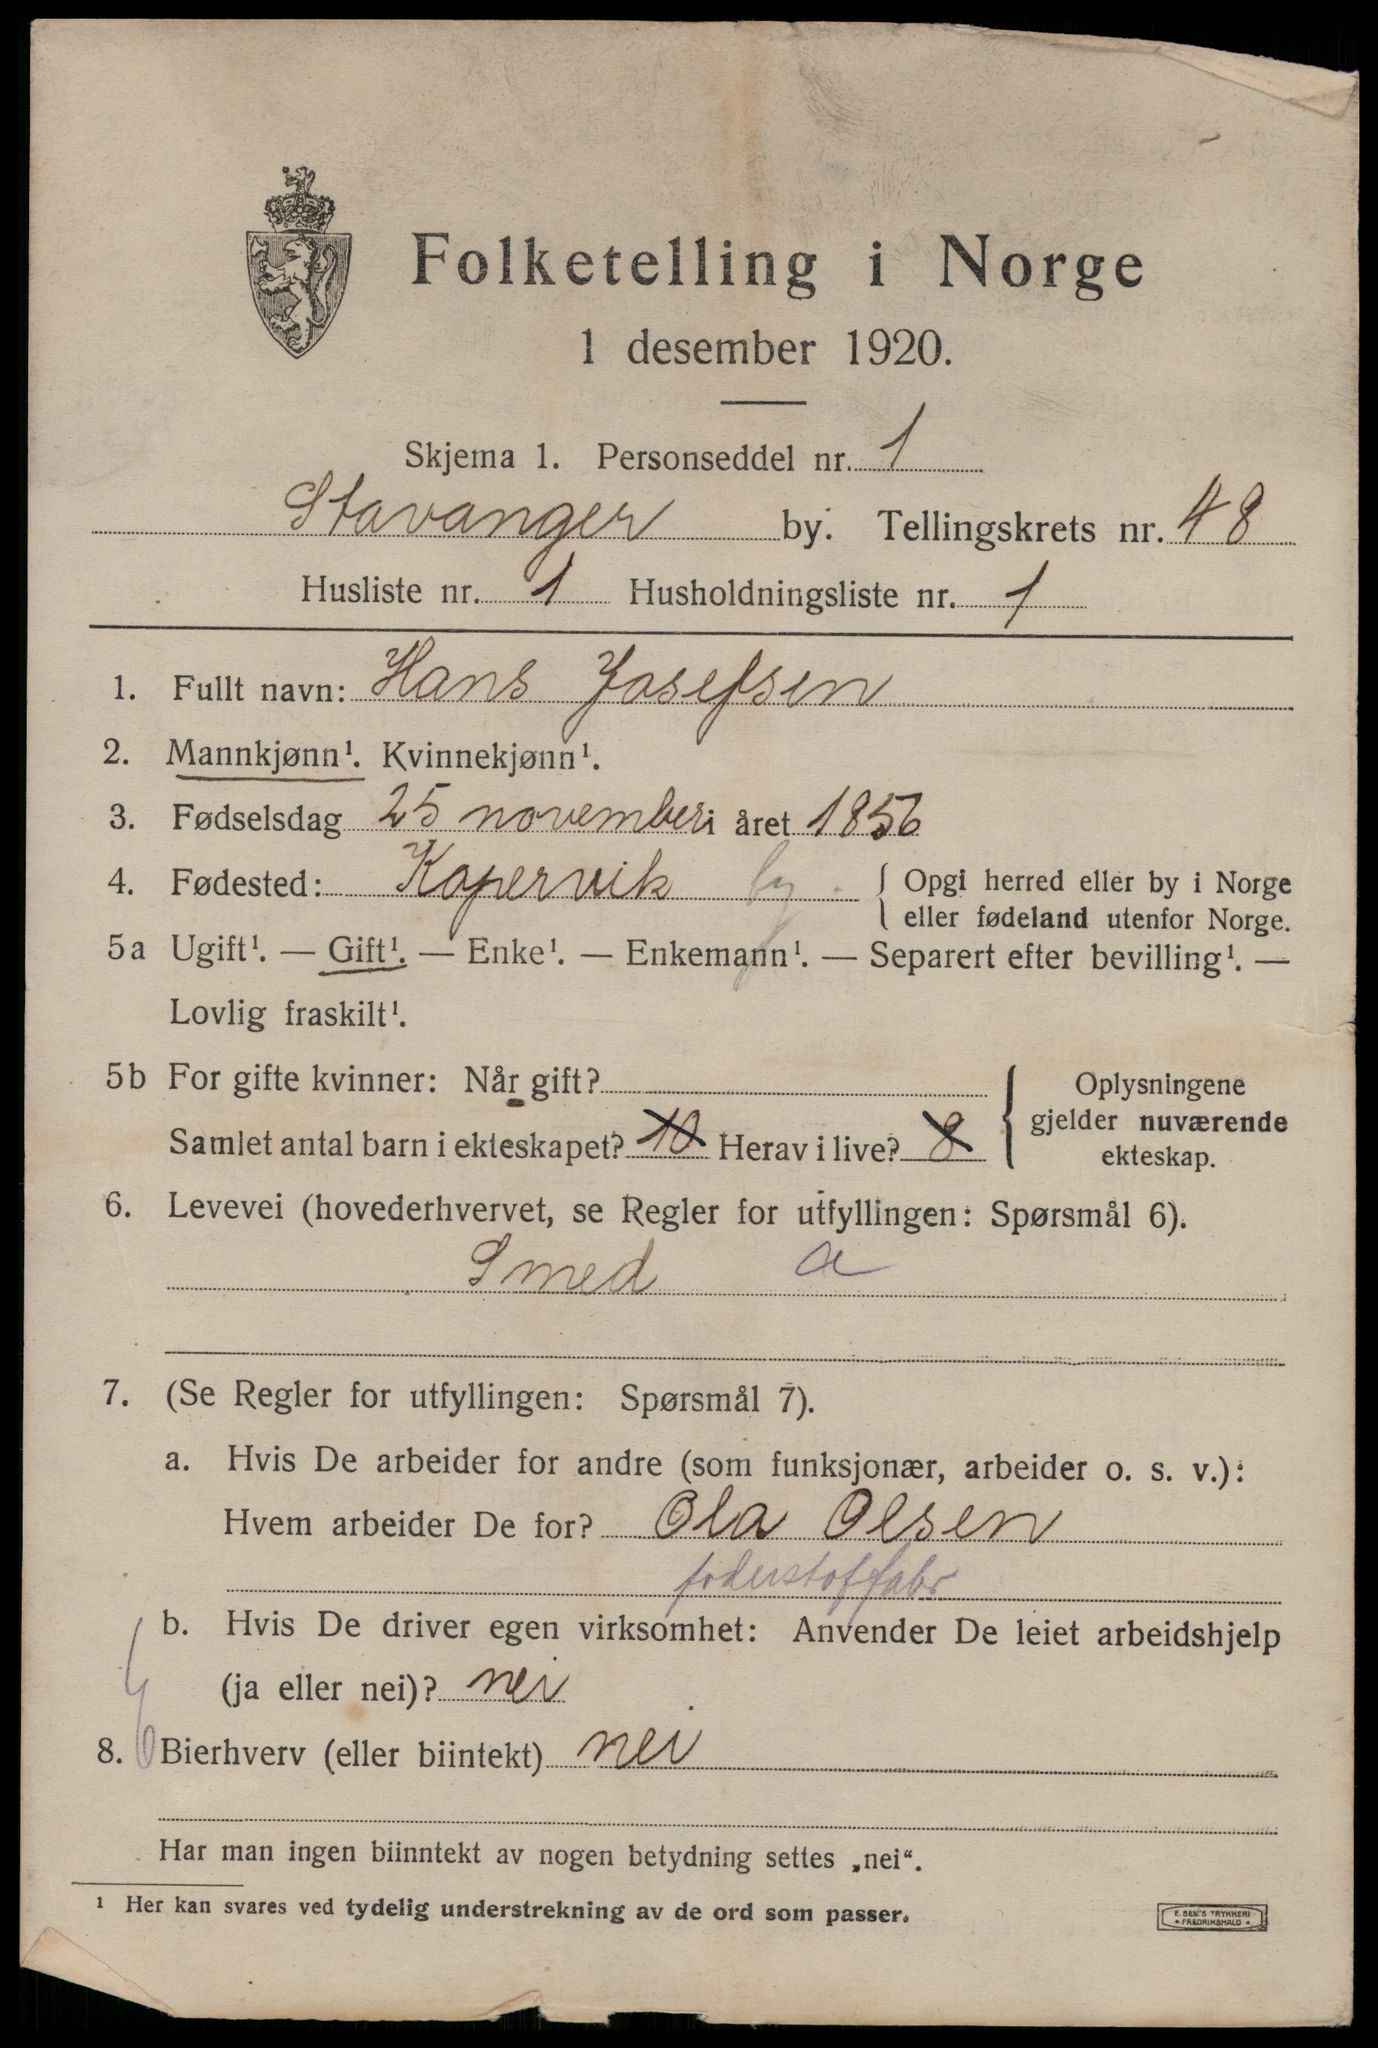 Folketelling i Norge
1 desember 1920.
Skjema 1. Personseddel nr. 1
Stavanger by. Tellingskrets nr. 48
Husliste nr. 1 Husholdningsliste nr. 1
1. Fullt navn: Hans Josefsen
2. Mannkjønn¹. Kvinnekjønn¹.
3. Fødselsdag 25 november i året 1856
4. Fødested: Kopervik by { Opgi herred eller by i Norge
eller fødeland utenfor Norge.
5a Ugift¹. — Gift¹. — Enke¹. — Enkemann¹. — Separert efter bevilling¹. —
Lovlig fraskilt¹.
5b For gifte kvinner: Når gift?
Samlet antal barn i ekteskapet? 10 Herav i live? 8
{ Oplysningene
gjelder nuværende
ekteskap.
6. Levevei (hovederhvervet, se Regler for utfyllingen: Spørsmål 6).
Smed a
7. (Se Regler for utfyllingen: Spørsmål 7).
a. Hvis De arbeider for andre (som funksjonær, arbeider o. s. v.):
Hvem arbeider De for? Ola Olsen
foderstoffabr
b. Hvis De driver egen virksomhet: Anvender De leiet arbeidshjelp
(ja eller nei)? nei
8. Bierhverv (eller biintekt) nei
Har man ingen biinntekt av nogen betydning settes „nei".
¹ Her kan svares ved tydelig understrekning av de ord som passer.
E. SEM'S TRYKKERI
* FREDRIKSHALD *